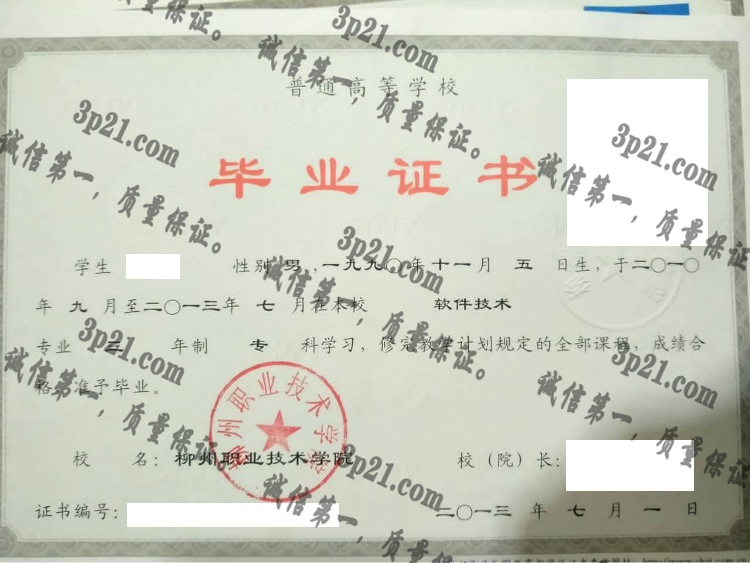 3p21.com
诚信第一，质量保证。
普通高等学校
毕业证书
学生 性别 男 ,一九九〇年 十一月 五 日生，于二〇一〇
年 九 月至二〇一三年 七 月在本校 软件技术
专业 三 年制 专 科学习，修完教学计划规定的全部课程，成绩合
格，准予毕业。
柳州职业技术学院
校 名：柳州职业技术学院 校（院）长：
证书编号： 二〇一三 年 七 月 一 日
3p21.com
诚信第一，质量保证。
3p21.com
诚信第一，质量保证。
3p21.com
诚信第一，质量保证。
3p21.com
诚信第一，质量保证。
3p21.com
诚信第一，质量保证。
3p21.com
诚信第一，质量保证。